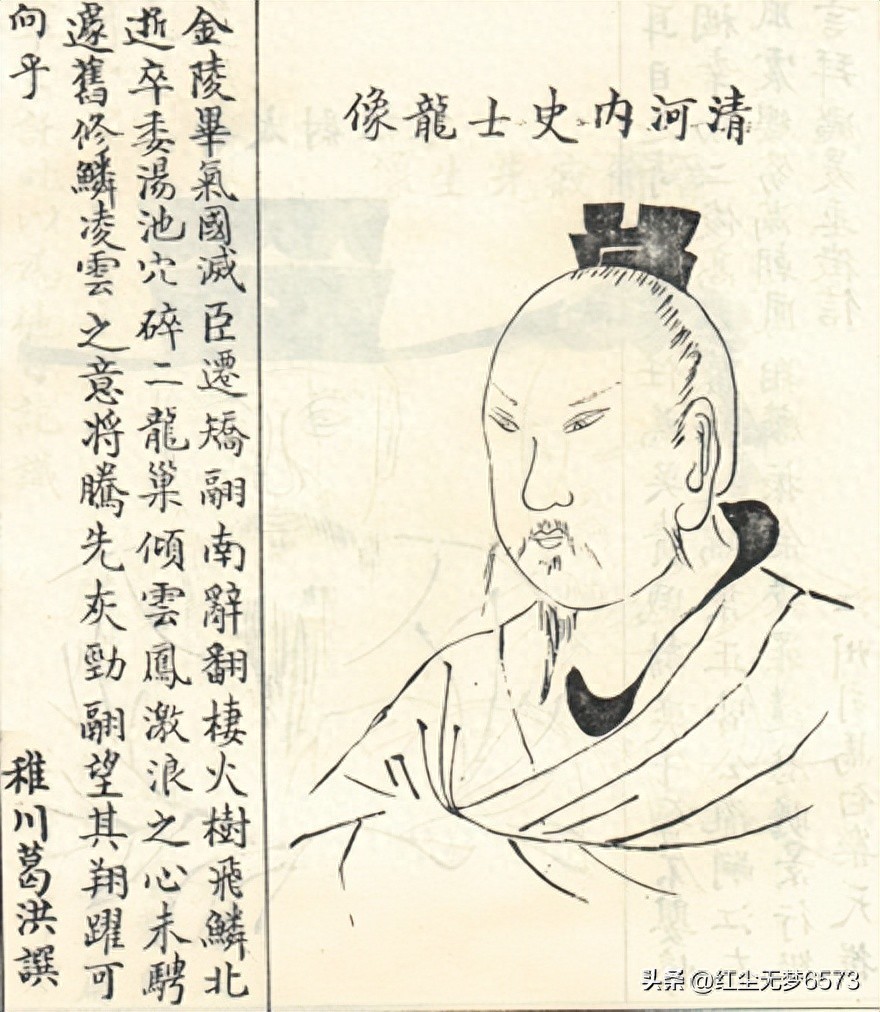 清河内史士龍像
金陵畢氣國滅臣遷矯翮南辭翻棲火樹飛鱗北
逝卒委湯池穴碎二龍巢傾雲鳳激浪之心未騁
遽舊修鱗凌雲之意将騰先灰勁翮望其翔躍可
向乎
稚川葛洪譔
头条 @红尘无梦6573